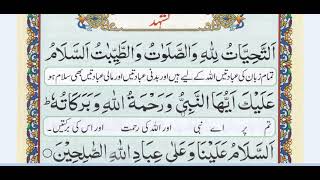 تشہد
اَلتَّحِيَّاتُ لِلّٰهِ وَالصَّلَوٰتُ وَالطَّيِّبٰتُ اَلسَّلَامُ
تمام زبان کی عبادتیں اللہ کے لیے ہیں اور بدنی عبادتیں اور مالی عبادتیں بھی سلام ہو
عَلَيْكَ اَيُّهَا النَّبِيُّ وَرَحْمَةُ اللّٰهِ وَبَرَكَاتُهٗ ط
تم پر اے نبی اور اللہ کی رحمت اور اس کی برکتیں۔
اَلسَّلَامُ عَلَيْنَا وَعَلٰى عِبَادِ اللّٰهِ الصّٰلِحِيْنَ ○